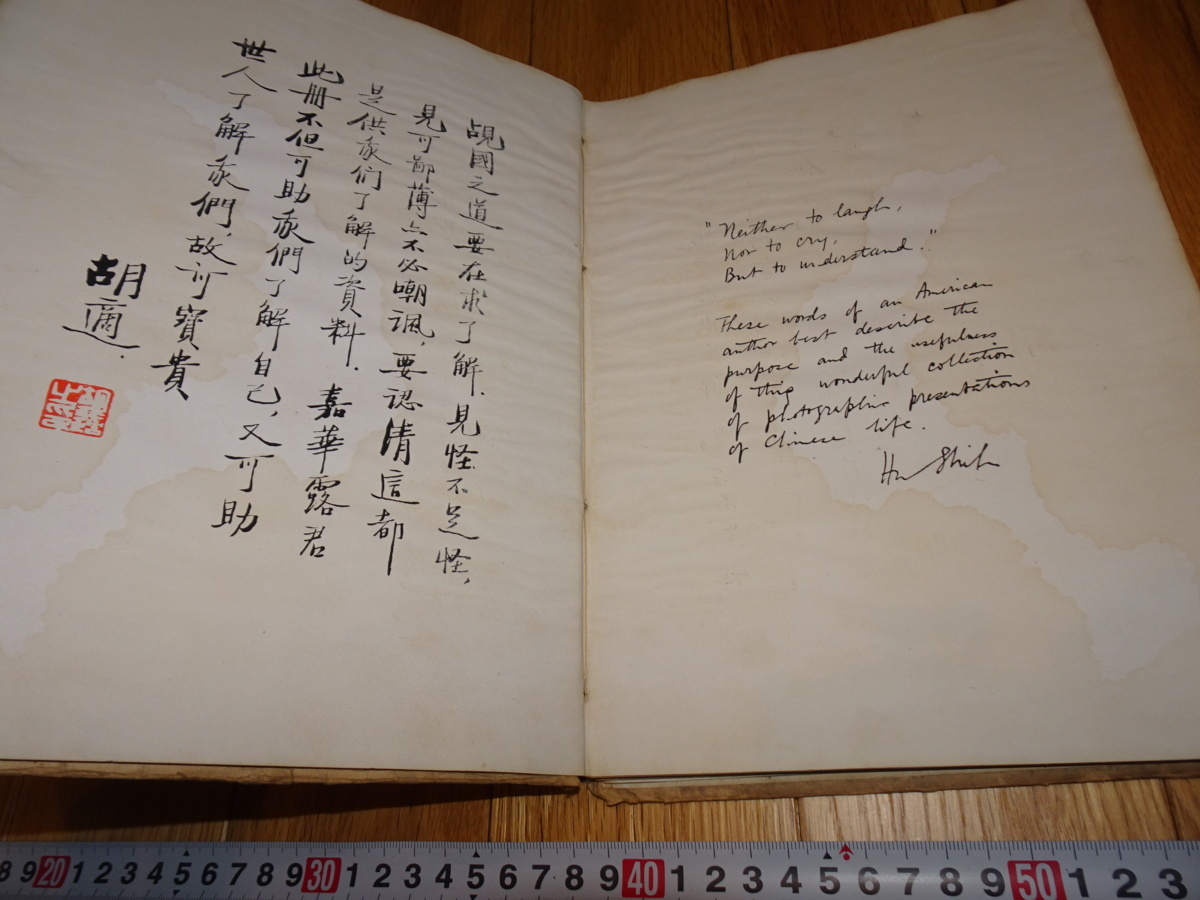 覘國之道要在求了解.見怪不足怪,
見可鄙薄亦不必嘲諷,要認清這都
是供我们了解的資料.嘉華露君
此册不但可助我們了解自己,又可助
世人了解我們,故可寶貴
胡適.
"Neither to laugh,
Nor to cry,
But to understand."
These words of an American
author best describe the
purpose and the usefulness
of this wonderful collection
of photographic presentations
of Chinese life.
Hu Shih
8 9 20 1 2 3 4 5 6 7 8 9 30 1 2 3 4 5 6 7 8 9 40 1 2 3 4 5 6 7 8 9 50 1 2 3